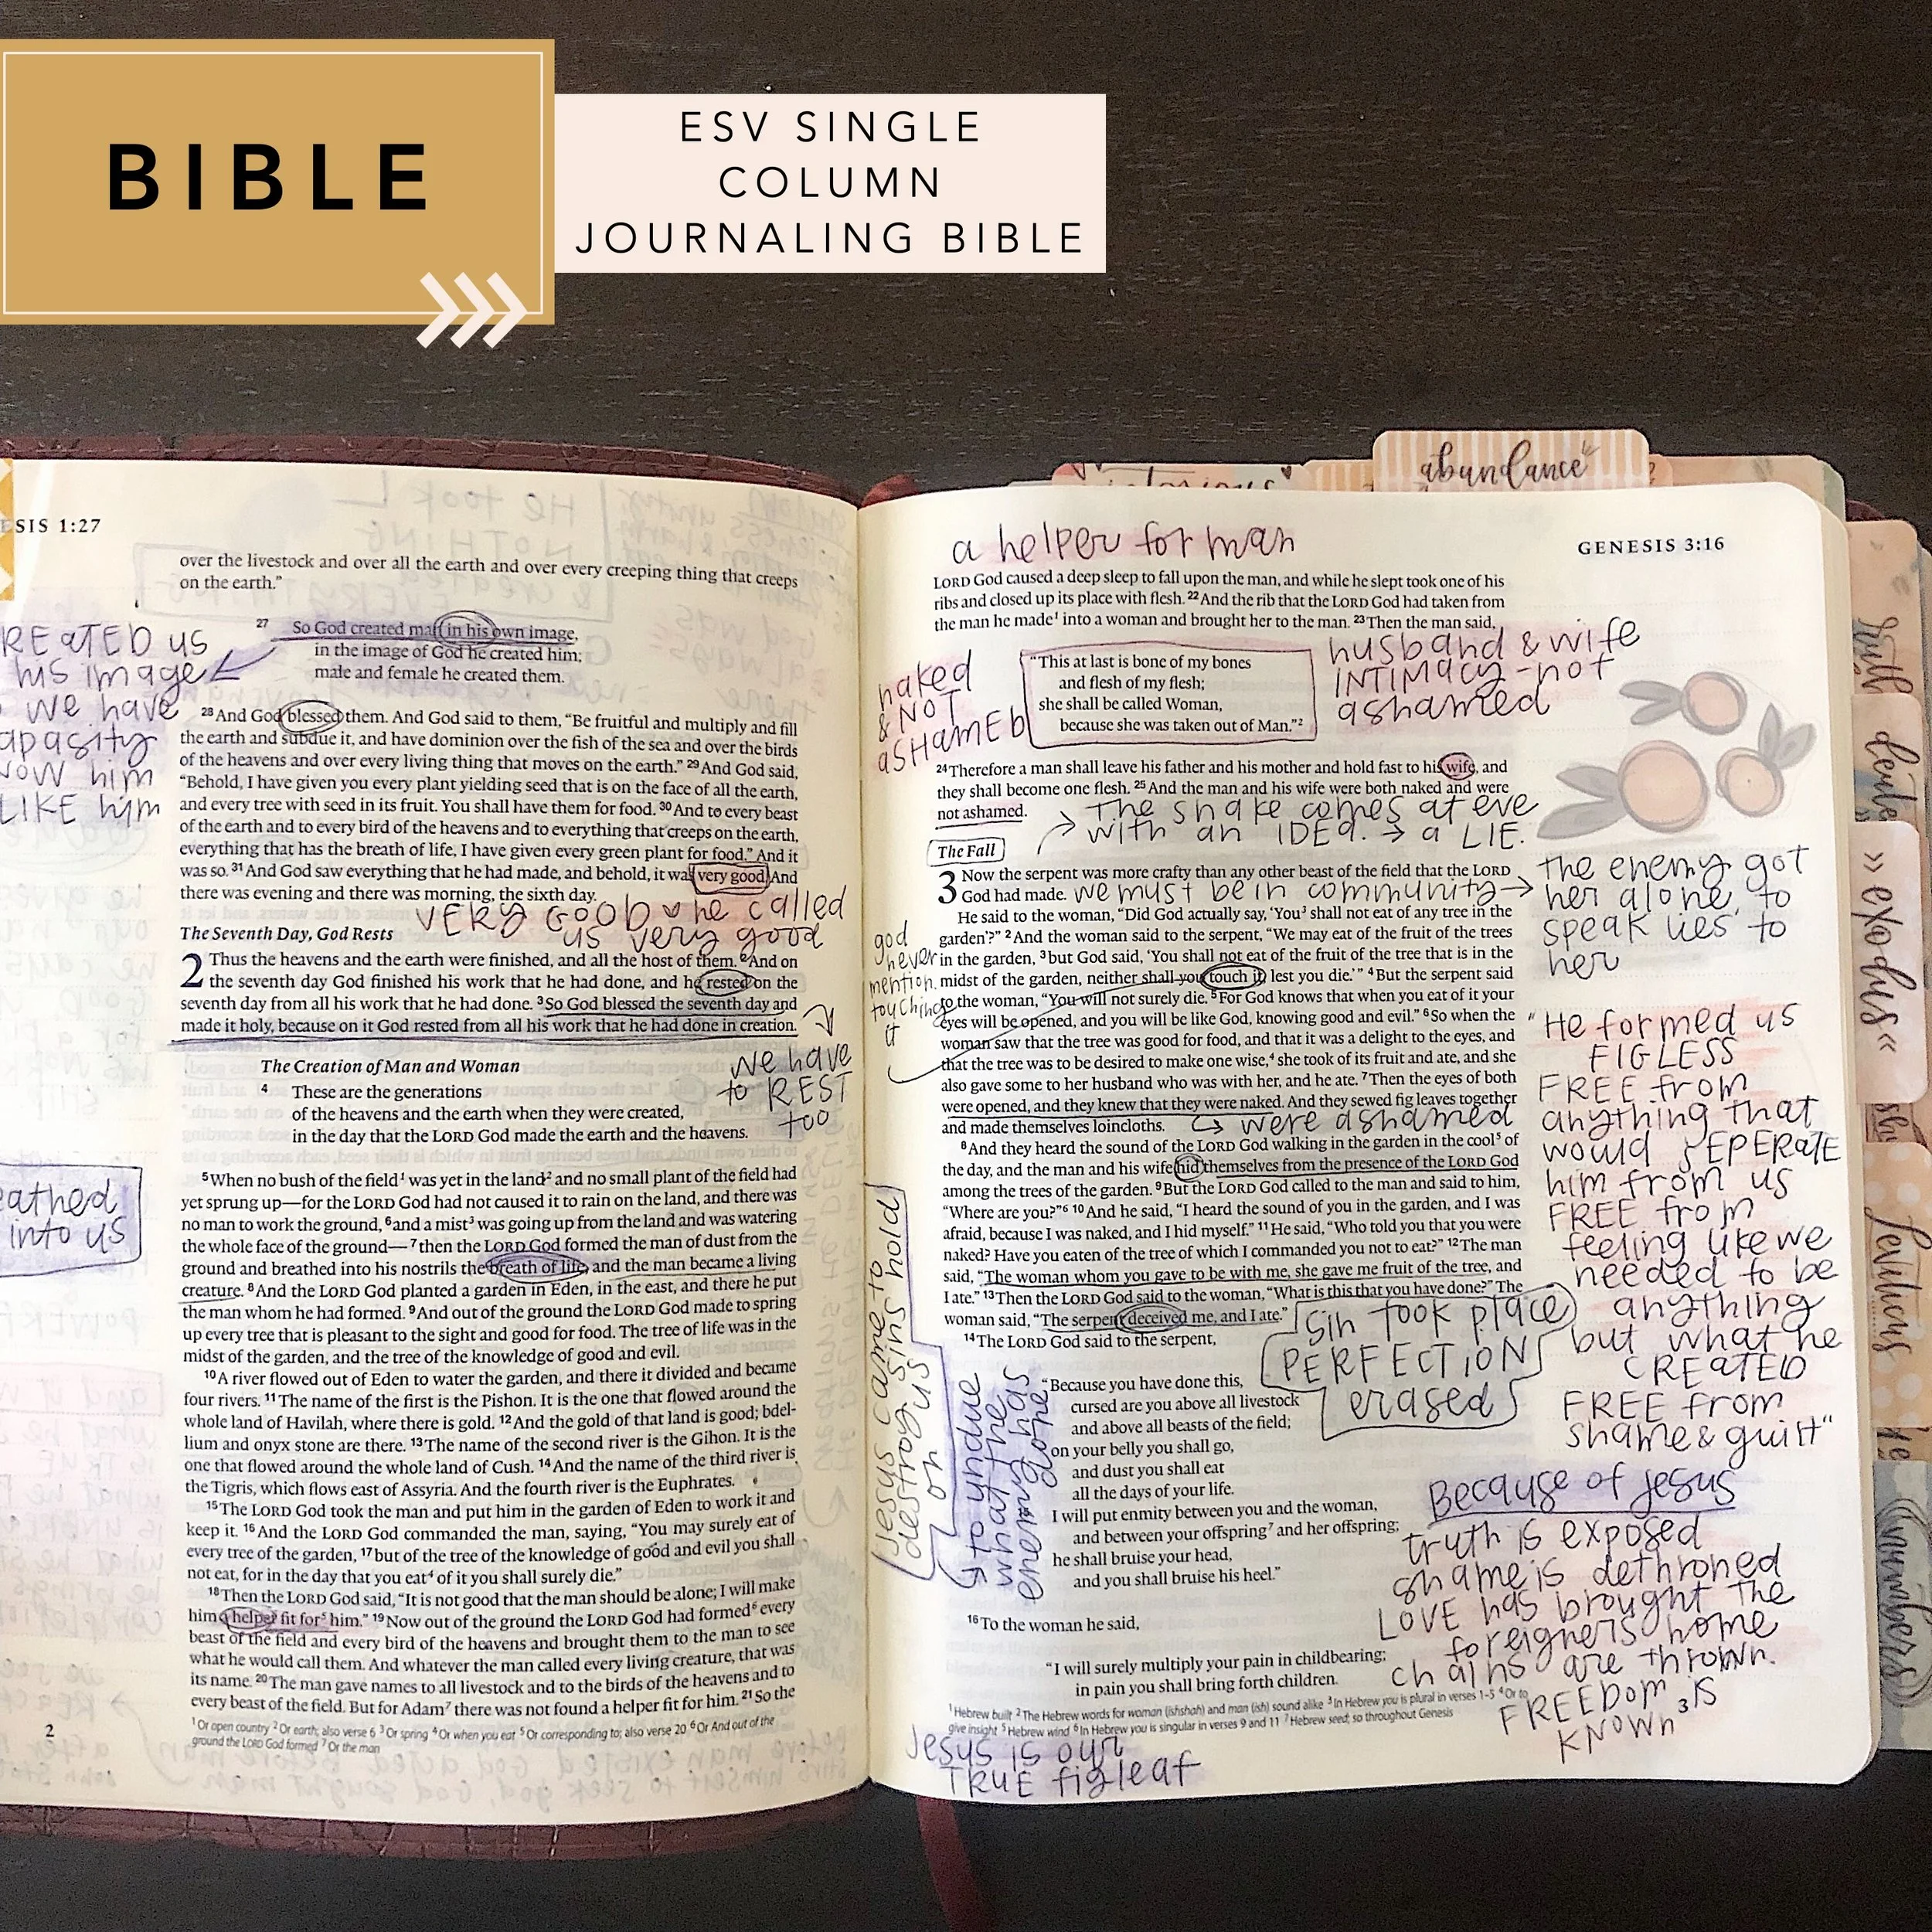 BIBLE
ESV SINGLE
COLUMN
JOURNALING BIBLE
ESIS 1:27
over the livestock and over all the earth and over every creeping thing that creeps
on the earth.”
27 So God created man in his own image,
in the image of God he created him;
male and female he created them.
REATED us
his image
we have
apasity
now him
LIKE him
28 And God blessed them. And God said to them, “Be fruitful and multiply and fill
the earth and subdue it, and have dominion over the fish of the sea and over the birds
of the heavens and over every living thing that moves on the earth.” 29 And God said,
“Behold, I have given you every plant yielding seed that is on the face of all the earth,
and every tree with seed in its fruit. You shall have them for food. 30 And to every beast
of the earth and to every bird of the heavens and to everything that creeps on the earth,
everything that has the breath of life, I have given every green plant for food.” And it
was so. 31 And God saw everything that he had made, and behold, it was very good. And
there was evening and there was morning, the sixth day.
VERY GOOD ♥ he called
us very good
The Seventh Day, God Rests
2 Thus the heavens and the earth were finished, and all the host of them. 2 And on
the seventh day God finished his work that he had done, and he rested on the
seventh day from all his work that he had done. 3 So God blessed the seventh day and
made it holy, because on it God rested from all his work that he had done in creation.
we have
to REST
too
The Creation of Man and Woman
4 These are the generations
of the heavens and the earth when they were created,
in the day that the LORD God made the earth and the heavens.
eathed
into us
5 When no bush of the field1 was yet in the land2 and no small plant of the field had
yet sprung up—for the LORD God had not caused it to rain on the land, and there was
no man to work the ground, 6 and a mist3 was going up from the land and was watering
the whole face of the ground— 7 then the LORD God formed the man of dust from the
ground and breathed into his nostrils the breath of life, and the man became a living
creature. 8 And the LORD God planted a garden in Eden, in the east, and there he put
the man whom he had formed. 9 And out of the ground the LORD God made to spring
up every tree that is pleasant to the sight and good for food. The tree of life was in the
midst of the garden, and the tree of the knowledge of good and evil.
10 A river flowed out of Eden to water the garden, and there it divided and became
four rivers. 11 The name of the first is the Pishon. It is the one that flowed around the
whole land of Havilah, where there is gold. 12 And the gold of that land is good; bdel-
lium and onyx stone are there. 13 The name of the second river is the Gihon. It is the
one that flowed around the whole land of Cush. 14 And the name of the third river is
the Tigris, which flows east of Assyria. And the fourth river is the Euphrates.
15 The LORD God took the man and put him in the garden of Eden to work it and
keep it. 16 And the LORD God commanded the man, saying, “You may surely eat of
every tree of the garden, 17 but of the tree of the knowledge of good and evil you shall
not eat, for in the day that you eat4 of it you shall surely die.”
18 Then the LORD God said, “It is not good that the man should be alone; I will make
him a helper fit for5 him.” 19 Now out of the ground the LORD God had formed6 every
beast of the field and every bird of the heavens and brought them to the man to see
what he would call them. And whatever the man called every living creature, that was
its name. 20 The man gave names to all livestock and to the birds of the heavens and to
every beast of the field. But for Adam7 there was not found a helper fit for him. 21 So the
1 Or open country 2 Or earth; also verse 6 3 Or spring 4 Or when you eat 5 Or corresponding to; also verse 20 6 Or And out of the
ground the LORD God formed 7 Or the man
2
abundance
a helper for man
GENESIS 3:16
LORD God caused a deep sleep to fall upon the man, and while he slept took one of his
ribs and closed up its place with flesh. 22 And the rib that the LORD God had taken from
the man he made1 into a woman and brought her to the man. 23 Then the man said,
naked
& NOT
aSHAMED
“This at last is bone of my bones
and flesh of my flesh;
she shall be called Woman,
because she was taken out of Man.”2
husband & wife
INTIMACY - not
ashamed
24 Therefore a man shall leave his father and his mother and hold fast to his wife, and
they shall become one flesh. 25 And the man and his wife were both naked and were
not ashamed.
The snake comes at eve
with an IDEA. → a LIE.
The Fall
3 Now the serpent was more crafty than any other beast of the field that the LORD
God had made.
we must be in community →
the enemy got
her alone to
speak lies to
her
He said to the woman, “Did God actually say, ‘You3 shall not eat of any tree in the
garden’?” 2 And the woman said to the serpent, “We may eat of the fruit of the trees
in the garden, 3 but God said, ‘You shall not eat of the fruit of the tree that is in the
midst of the garden, neither shall you touch it, lest you die.’” 4 But the serpent said
to the woman, “You will not surely die. 5 For God knows that when you eat of it your
eyes will be opened, and you will be like God, knowing good and evil.” 6 So when the
woman saw that the tree was good for food, and that it was a delight to the eyes, and
that the tree was to be desired to make one wise,4 she took of its fruit and ate, and she
also gave some to her husband who was with her, and he ate. 7 Then the eyes of both
were opened, and they knew that they were naked. And they sewed fig leaves together
and made themselves loincloths.
were ashamed
god
never
mention
touching
it
8 And they heard the sound of the LORD God walking in the garden in the cool5 of
the day, and the man and his wife hid themselves from the presence of the LORD God
among the trees of the garden. 9 But the LORD God called to the man and said to him,
“Where are you?”6 10 And he said, “I heard the sound of you in the garden, and I was
afraid, because I was naked, and I hid myself.” 11 He said, “Who told you that you were
naked? Have you eaten of the tree of which I commanded you not to eat?” 12 The man
said, “The woman whom you gave to be with me, she gave me fruit of the tree, and
I ate.” 13 Then the LORD God said to the woman, “What is this that you have done?” The
woman said, “The serpent deceived me, and I ate.”
14 The LORD God said to the serpent,
Sin took place
PERFECTION
erased
“He formed us
FIGLESS
FREE from
anything that
would SEPERATE
him from us
FREE from
feeling like we
needed to be
anything
but what he
CREATED
FREE from
shame & guilt“
Jesus came to
destroy sins hold
on us
to undue
what the
enemy has
done
“Because you have done this,
cursed are you above all livestock
and above all beasts of the field;
on your belly you shall go,
and dust you shall eat
all the days of your life.
I will put enmity between you and the woman,
and between your offspring7 and her offspring;
he shall bruise your head,
and you shall bruise his heel.”
16 To the woman he said,
“I will surely multiply your pain in childbearing;
in pain you shall bring forth children.
Because of Jesus
truth is exposed
shame is dethroned
LOVE has brought the
foreigners home
chains are thrown.
FREEDOM IS
KNOWN
1 Hebrew built 2 The Hebrew words for woman (ishshah) and man (ish) sound alike 3 In Hebrew you is plural in verses 1–5 4 Or to
give insight 5 Hebrew wind 6 In Hebrew you is singular in verses 9 and 11 7 Hebrew seed; so throughout Genesis
3
Jesus is our
TRUE figleaf
» exodus «
leviticus
numbers